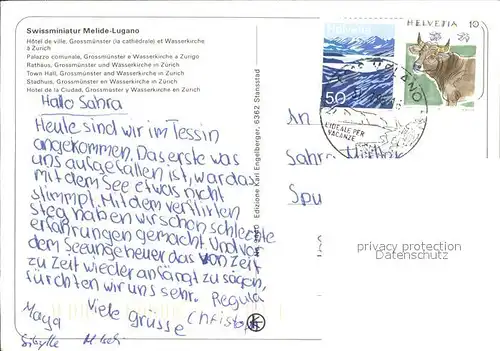 Swissminiatur Melide-Lugano
Hôtel de ville, Grossmünster (la cathédrale) et Wasserkirche
à Zurich
Palazzo comunale, Grossmünster e Wasserkirche a Zurigo
Rathaus, Grossmünster und Wasserkirche in Zürich
Town Hall, Grossmünster and Wasserkirche in Zürich
Stadhuis, Grossmünster en Wasserkirche in Zürich
Hotel de la Ciudad, Grossmünster y Wasserkirche en Zürich
Hallo Sahra
Heute sind wir im Tessin
angekommen. Das erste was
uns aufgefallen ist, war das
mit dem See etwas nicht
stimmt. Mit dem verflixten
steg haben wir schon schlechte
erfahrungen gemacht. Und vor
dem Seeungeheuer das von Zeit
zu Zeit wieder anfängt zu sagen,
fürchten wir uns sehr. Regula
Viele Grüsse Christoph
Maya
Sibylle
Edizione Karl Engelberger, 6362 Stansstad
HELVETIA 10
50
LUGANO
L'IDEALE PER
VACANZE
An
Sahra
privacy protection
Datenschutz